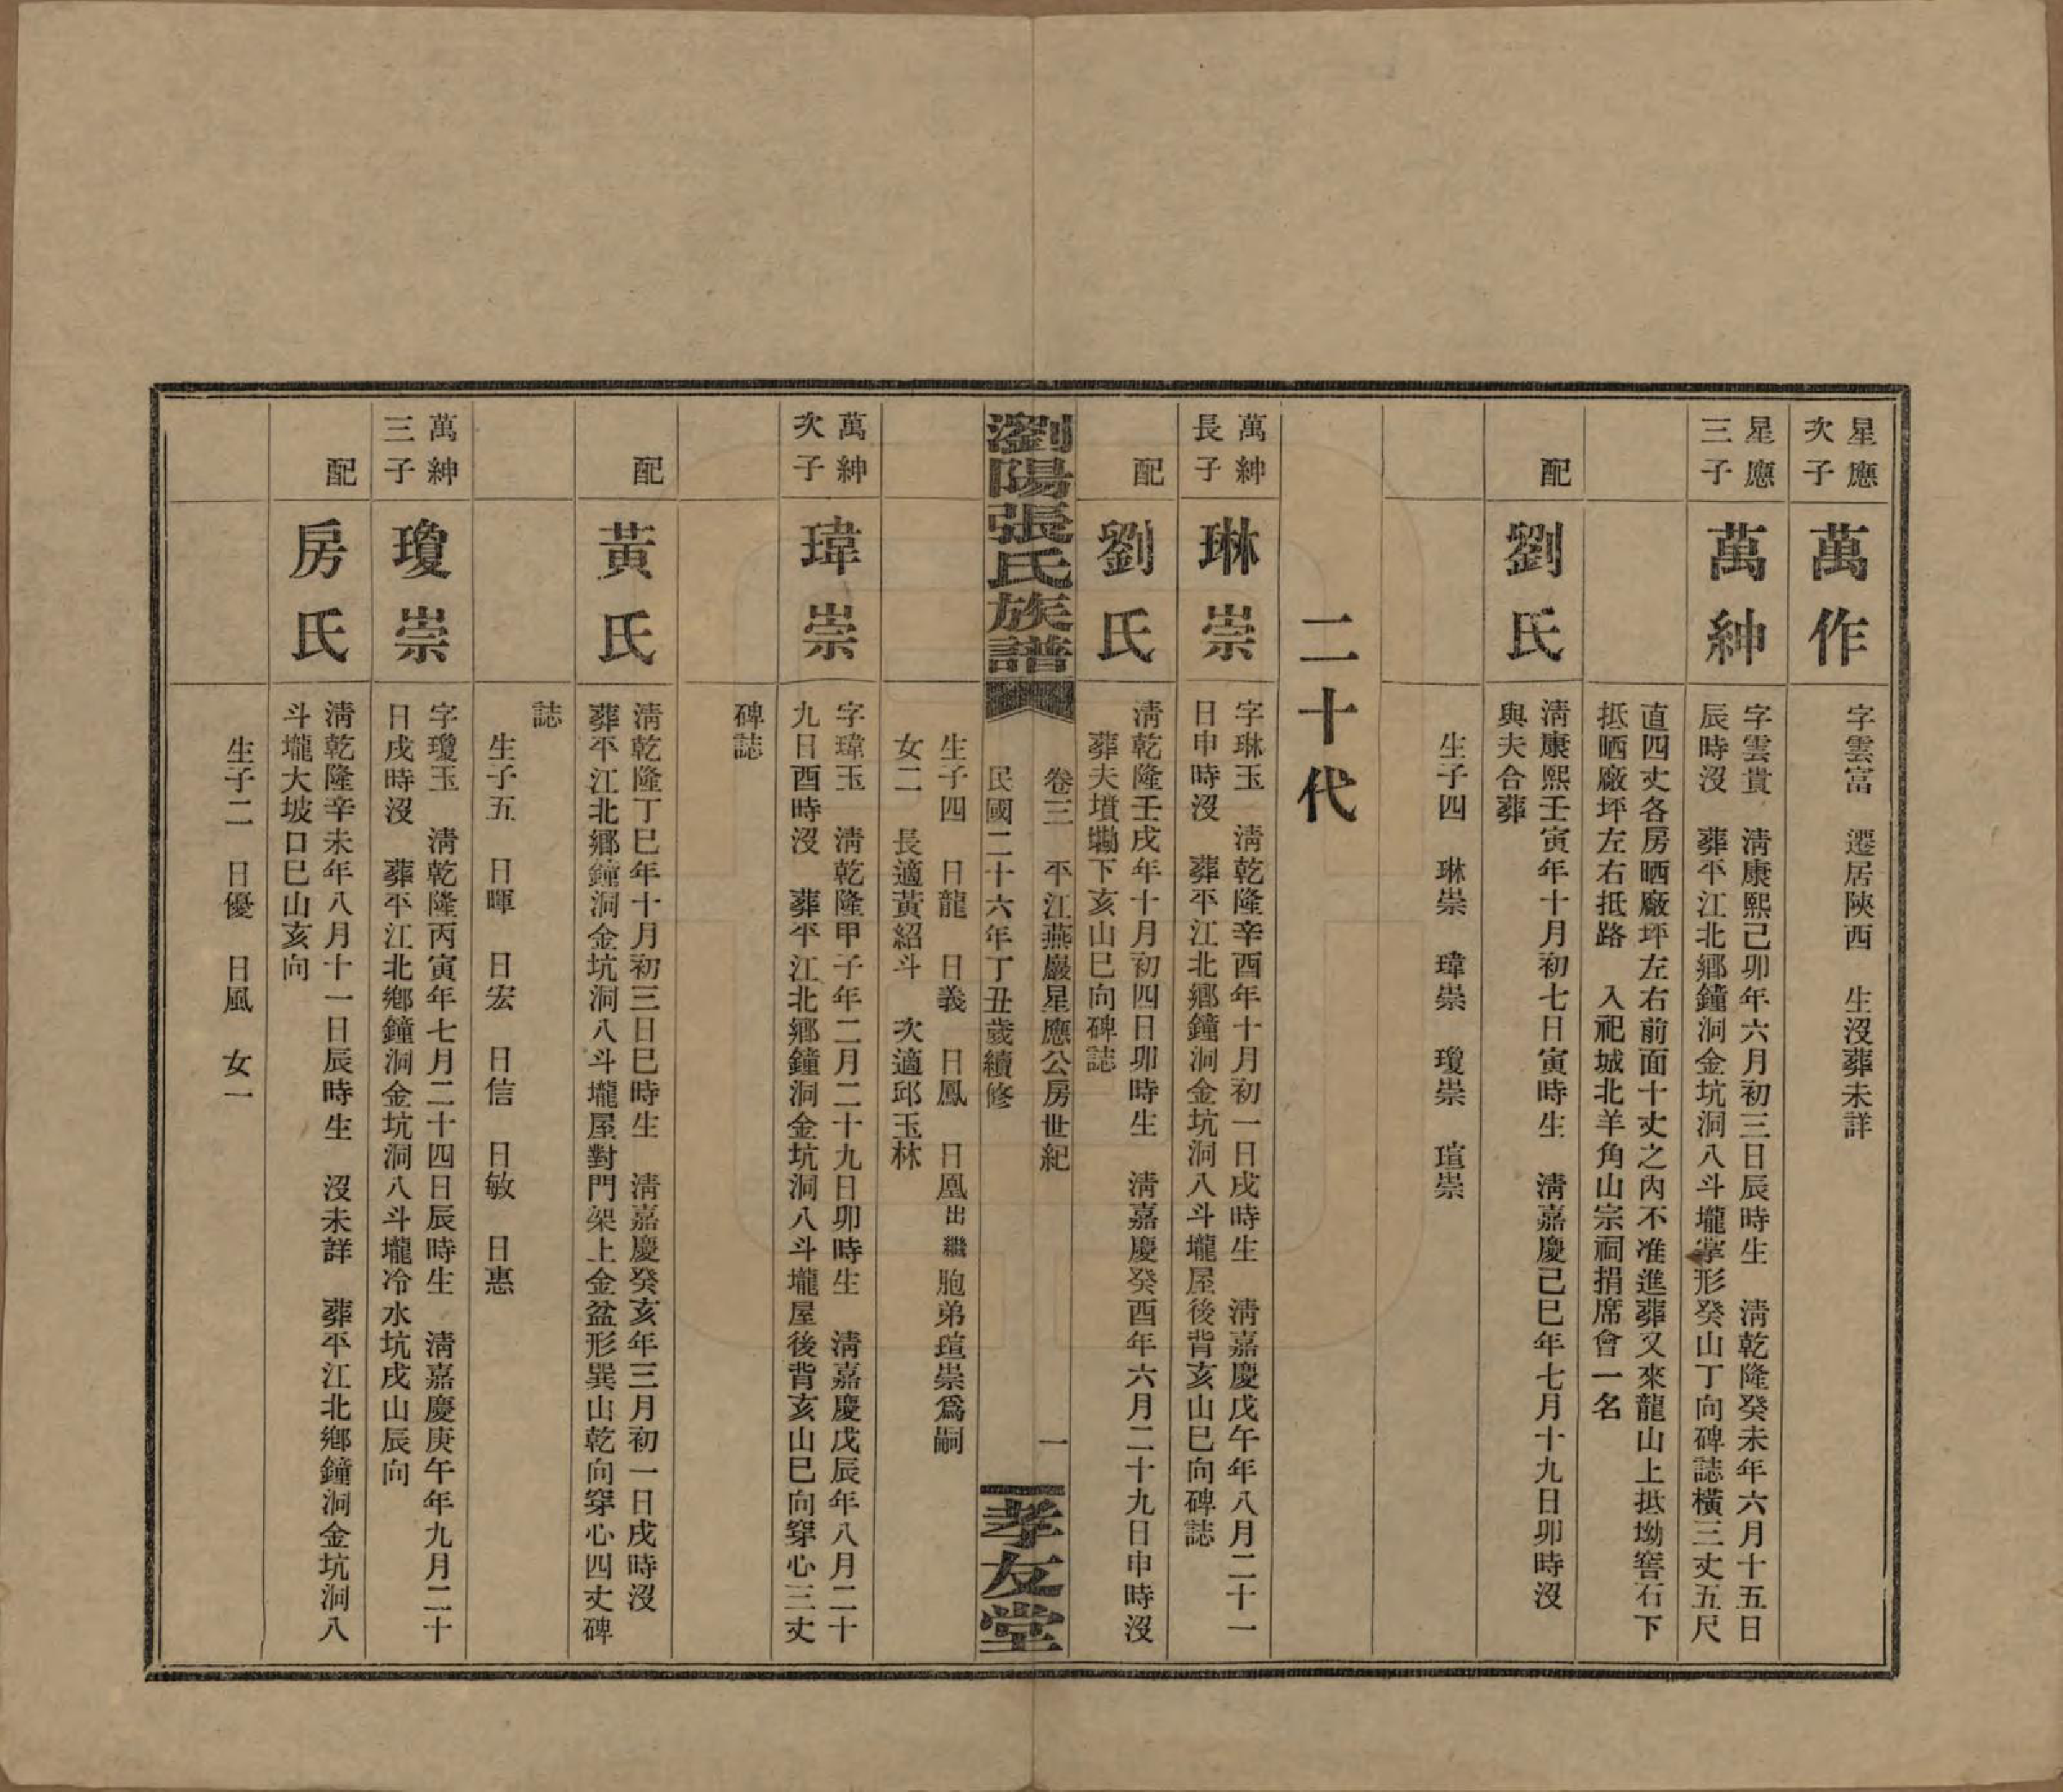 星應
次子
萬作
字雲富　遷居陝西　生沒葬未詳
星應
三子
萬紳
字雲貴　清康熙己卯年六月初三日辰時生　清乾隆癸未年六月十五日
辰時沒　葬平江北鄉鐘洞金坑洞八斗壠掌形癸山丁向碑誌橫三丈五尺
直四丈各房晒廠坪左右前面十丈之內不准進葬又來龍山上抵坳窖石下
抵晒廠坪左右抵路　入祀城北羊角山宗祠捐席會一名
配
劉氏
清康熙壬寅年十月初七日寅時生　清嘉慶己巳年七月十九日卯時沒
與夫合葬
生子四　琳崇　瑋崇　瓊崇　瑄崇
二十代
萬紳
長子
琳崇
字琳玉　清乾隆辛酉年十月初一日戌時生　清嘉慶戊午年八月二十一
日申時沒　葬平江北鄉鐘洞金坑洞八斗壠屋後背亥山巳向碑誌
配
劉氏
清乾隆壬戌年十月初四日卯時生　清嘉慶癸酉年六月二十九日申時沒
葬夫墳墈下亥山巳向碑誌
瀏陽張氏族譜
卷三　平江燕巖星應公房世紀　一
民國二十六年丁丑歲續修
孝友堂
生子四　日龍　日義　日鳳　日凰出繼胞弟瑄崇爲嗣
女二　長適黃紹斗　次適邱玉林
萬紳
次子
瑋崇
字瑋玉　清乾隆甲子年二月二十九日卯時生　清嘉慶戊辰年八月二十
九日酉時沒　葬平江北鄉鐘洞金坑洞八斗壠屋後背亥山巳向穿心三丈
碑誌
配
黃氏
清乾隆丁巳年十月初三日巳時生　清嘉慶癸亥年三月初一日戌時沒
葬平江北鄉鐘洞金坑洞八斗壠屋對門架上金盆形巽山乾向穿心四丈碑
誌
生子五　日暉　日宏　日信　日敏　日惠
萬紳
三子
瓊崇
字瓊玉　清乾隆丙寅年七月二十四日辰時生　清嘉慶庚午年九月二十
日戌時沒　葬平江北鄉鐘洞金坑洞八斗壠冷水坑戌山辰向
配
房氏
清乾隆辛未年八月十一日辰時生　沒未詳　葬平江北鄉鐘洞金坑洞八
斗壠大坡口巳山亥向
生子二　日優　日風　女一